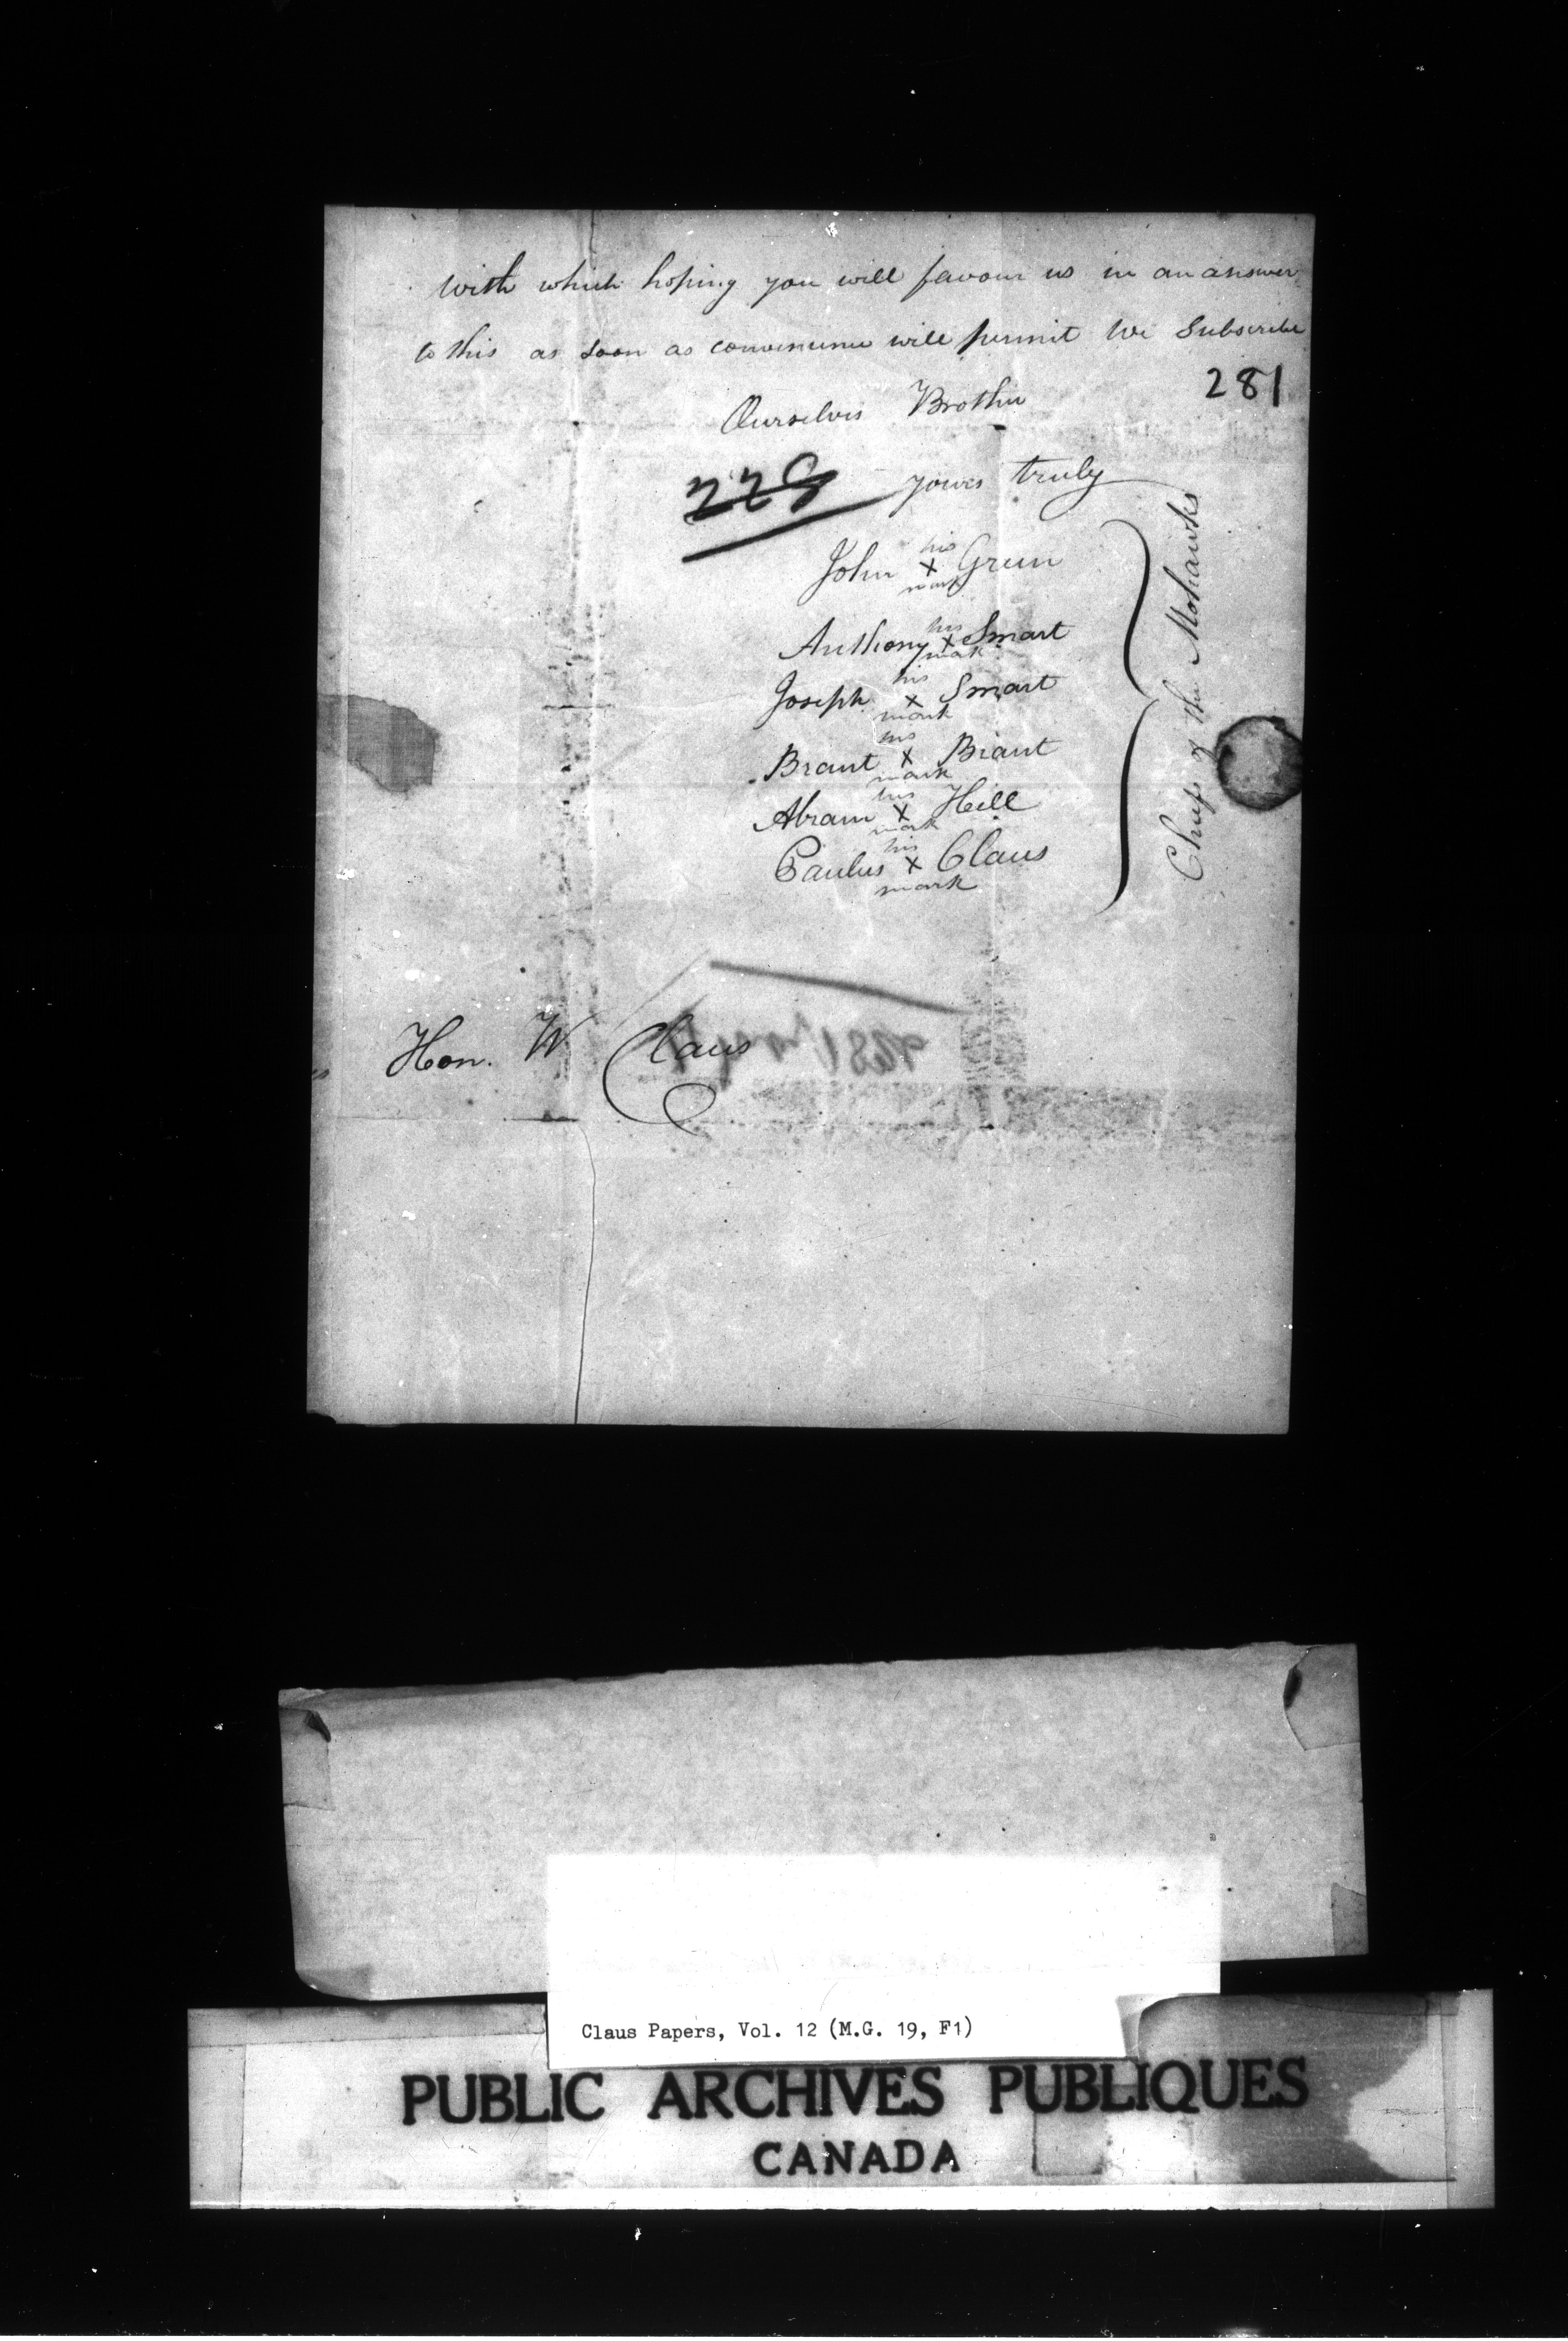 with which hoping you will favour us in an answer
to this as soon as convenience will permit We Subscribe
281
Ourselves Brother
228
yours truly
his
John X Green
mark
his
Anthony X Smart
mark
his
Joseph X Smart
mark
his
Brant X Brant
mark
his
Abram X Hill
mark
his
Paulus X Claus
mark
Chiefs of the Mohawks
Hon. W Claus
Claus Papers, Vol. 12 (M.G. 19, F1)
PUBLIC ARCHIVES PUBLIQUES
CANADA